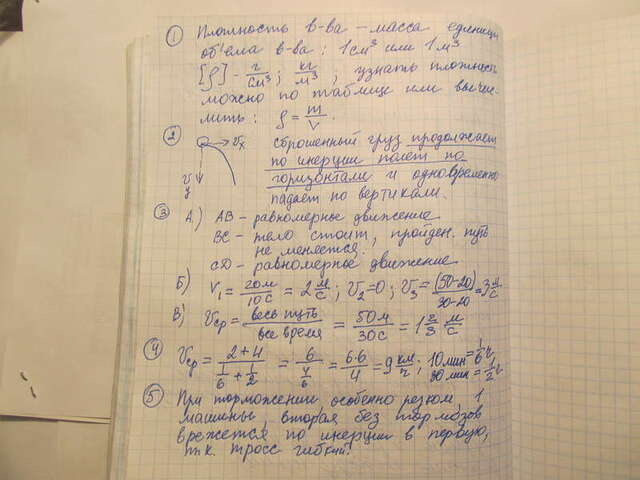 ① Плотность в-ва – масса единицы
объёма в-ва: 1см³ или 1м³
[ρ] - г/см³; кг/м³, узнать плотность
можно по таблице или вычис-
лить: ρ = m/V.
② Vx сброшенный груз продолжает
по инерции полет по
V горизонтали и одновременно
y падает по вертикали.
③ А) АВ – равномерное движение
ВС – тело стоит, пройден. путь
не меняется.
СD – равномерное движение
Б) V₁ = 20м/10с = 2 м/с; V₂=0; V₃ = (50-20)/30-20 = 3 м/с
В) Vср = весь путь/все время = 50м/30с = 1 2/3 м/с
④ Vср = 2+4/(1/6 + 1/2) = 6/(4/6) = 6·6/4 = 9 км/ч; 10мин = 1/6 ч,
30мин = 1/2 ч
⑤ При торможении особенно резком, 1
машины вторая без тормозов
врежется по инерции в первую,
т.к. тросс гибкий.